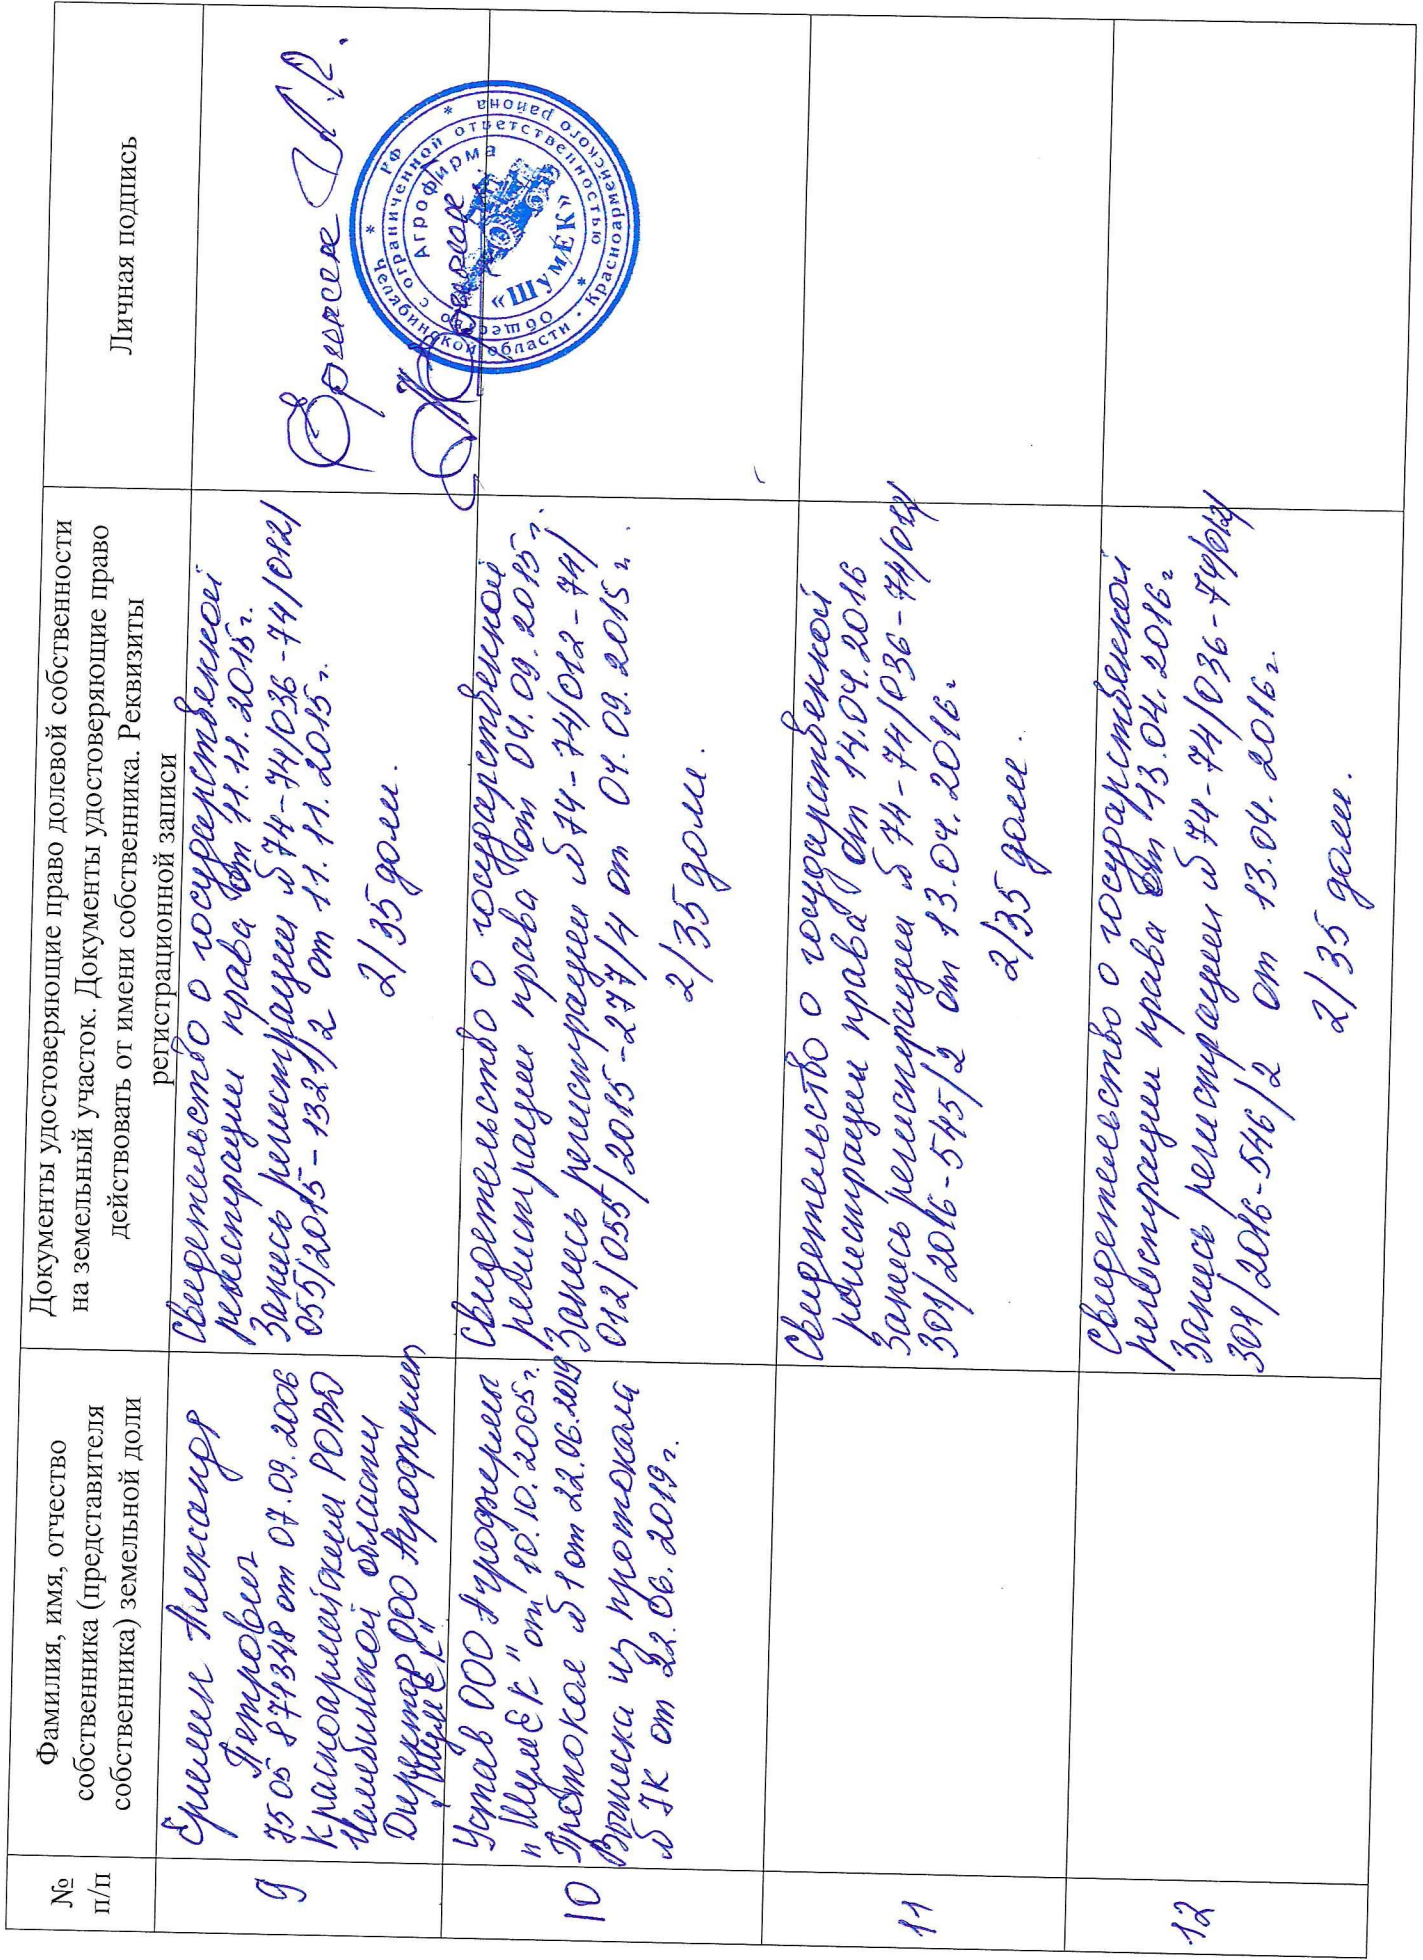 №
п/п
Фамилия, имя, отчество
собственника (представителя
собственника) земельной доли
Документы удостоверяющие право долевой собственности
на земельный участок. Документы удостоверяющие право
действовать от имени собственника. Реквизиты
регистрационной записи
Личная подпись
9
Александр
Петрович
7505 871348 от 07.09.2006
Красноармейским РОВД
Челябинской области
Директор ООО Агрофирмы
"ШумЕК"
Свидетельство о государственной
регистрации права от 11.11.2015г.
Запись регистрации № 74-74/036-74/012/
055/2015-1321/2 от 11.11.2015г.
2/35 доли.
Общество с ограниченной ответственностью
Агрофирма
«ШумЁК»
* РФ * Челябинской области • Красноармейского района
10
Устав ООО Агрофирмы
"ШумЕК" от 10.10.2005г.
Протокол №1 от 22.06.2019
Выписка из протокола
от 22.06.2019г.
Свидетельство о государственной
регистрации права от 04.09.2015г.
Запись регистрации № 74-74/012-74/
012/055/2015-277/4 от 04.09.2015г.
2/35 доли.
11
Свидетельство о государственной
регистрации права от 14.04.2016
Запись регистрации № 74-74/036-74/012/
301/2016-545/2 от 13.04.2016г
2/35 доли.
12
Свидетельство о государственной
регистрации права от 13.04.2016г
Запись регистрации № 74-74/036-74/012/
301/2016-546/2 от 13.04.2016г.
2/35 доли.